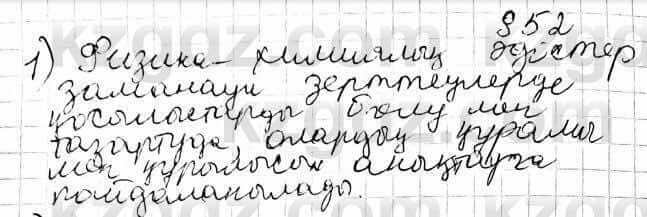 § 52
1) Физика - химиялық әдістер
заманауи зерттеулерде
қосылыстарды бөлу мен
тазартуда, олардың құрамы
мен құрылысын анықтауға
пайдаланылады.